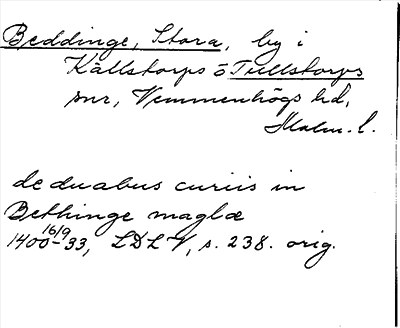 Beddinge, Stora, by i
Källstorps o Tullstorps
snr, Vemmenhögs hd,
Malm. l.
de duabus curiis in
Bethinge maglæ
1400 16/9 -33, LDLV, s. 238. orig.